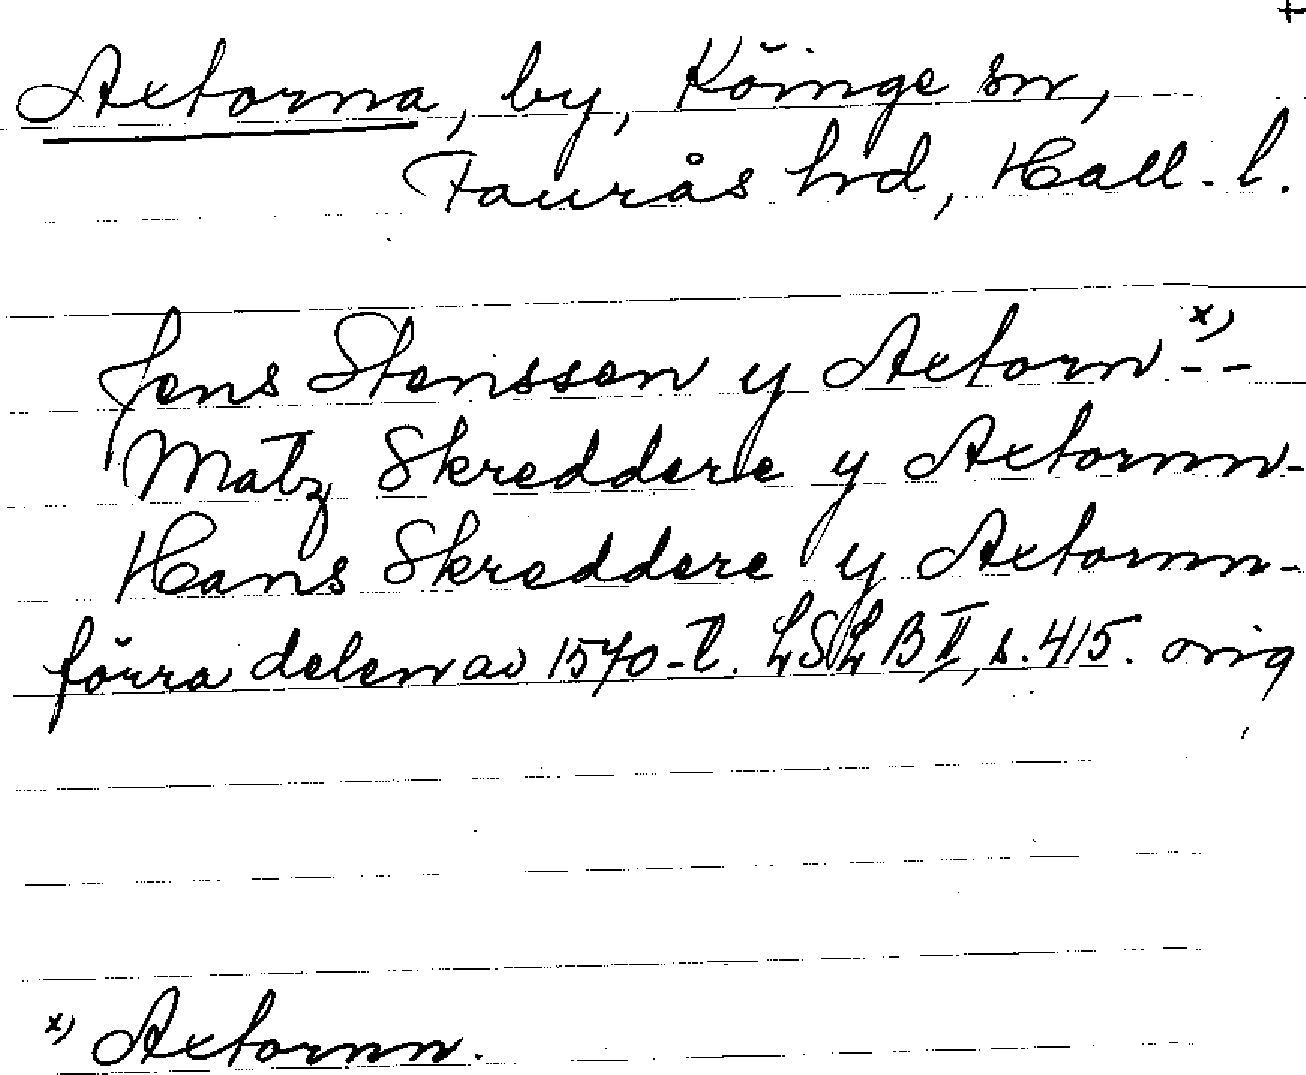 +
Axtorna, by, Köinge sn,
Faurås hd, Hall. l.
Jens Stenssen y Axtorn x) - -
Matz Skreddere y Axtornn-
Hans Skreddere y Axtornn-
förra delen av 1570-t. LSLB II, s. 415. orig
x) Axtornn.